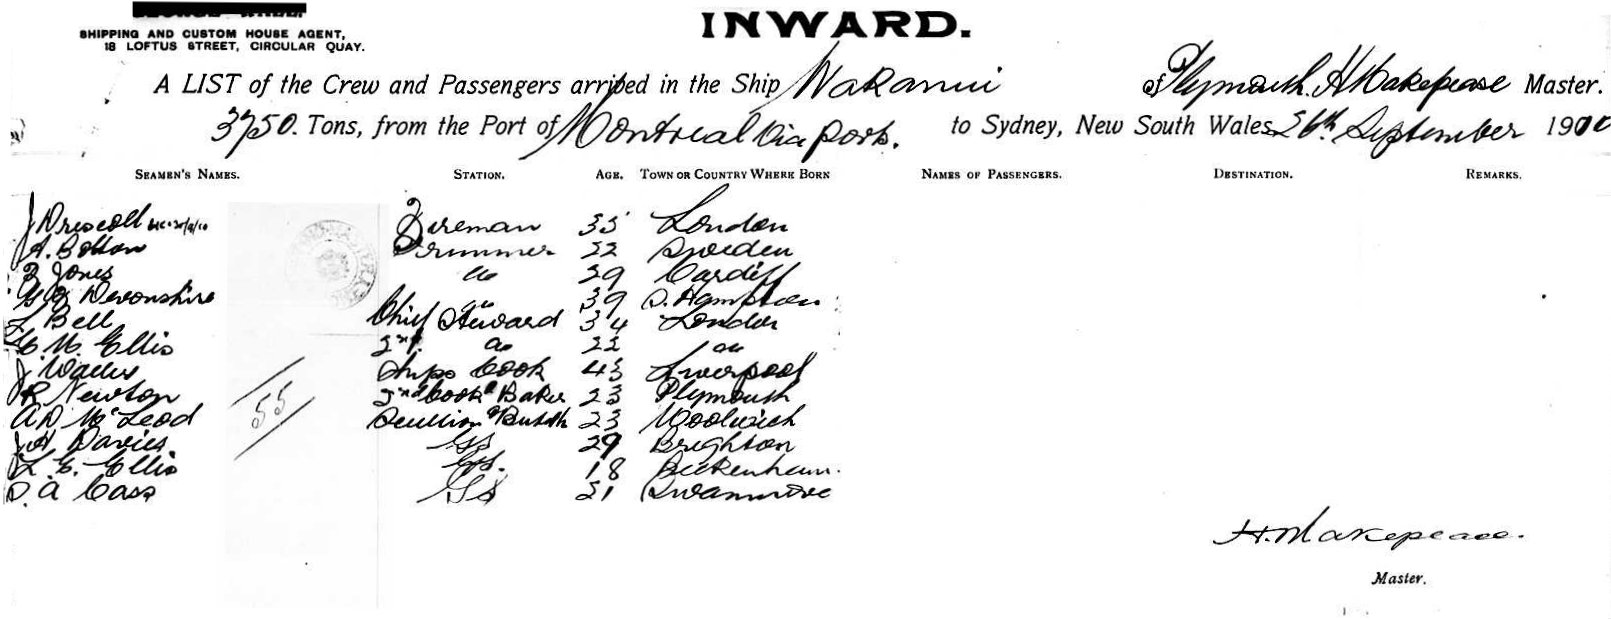 SHIPPING AND CUSTOM HOUSE AGENT,
18 LOFTUS STREET, CIRCULAR QUAY.
INWARD.
A LIST of the Crew and Passengers arrived in the Ship Wakanui of Plymouth. H Makepease Master.
3750. Tons, from the Port of Montreal Via ports. to Sydney, New South Wales 26th September 1910
SEAMEN'S NAMES. STATION. AGE. TOWN OR COUNTRY WHERE BORN NAMES OF PASSENGERS. DESTINATION. REMARKS.
J Driscoll Fireman 35 London
A. Bolton Trimmer 22 Sweden
Jones do 29 Cardiff
Devonshire do 39 S. Hampton
Bell Chief Steward 34 London
C. W. Ellis 2nd. do 22 do
J. Wallis Ships Cook 43 Liverpool
R Newton 2nd Cook & Baker 23 Plymouth
A D McLeod Scullion & Butch 23 Woolwich
J H Davies GS 29 Brighton
L. C. Ellis GS. 18 Beckenham.
S. A Cass GS 21 Swanmore
55
H. Makepeace.
Master.